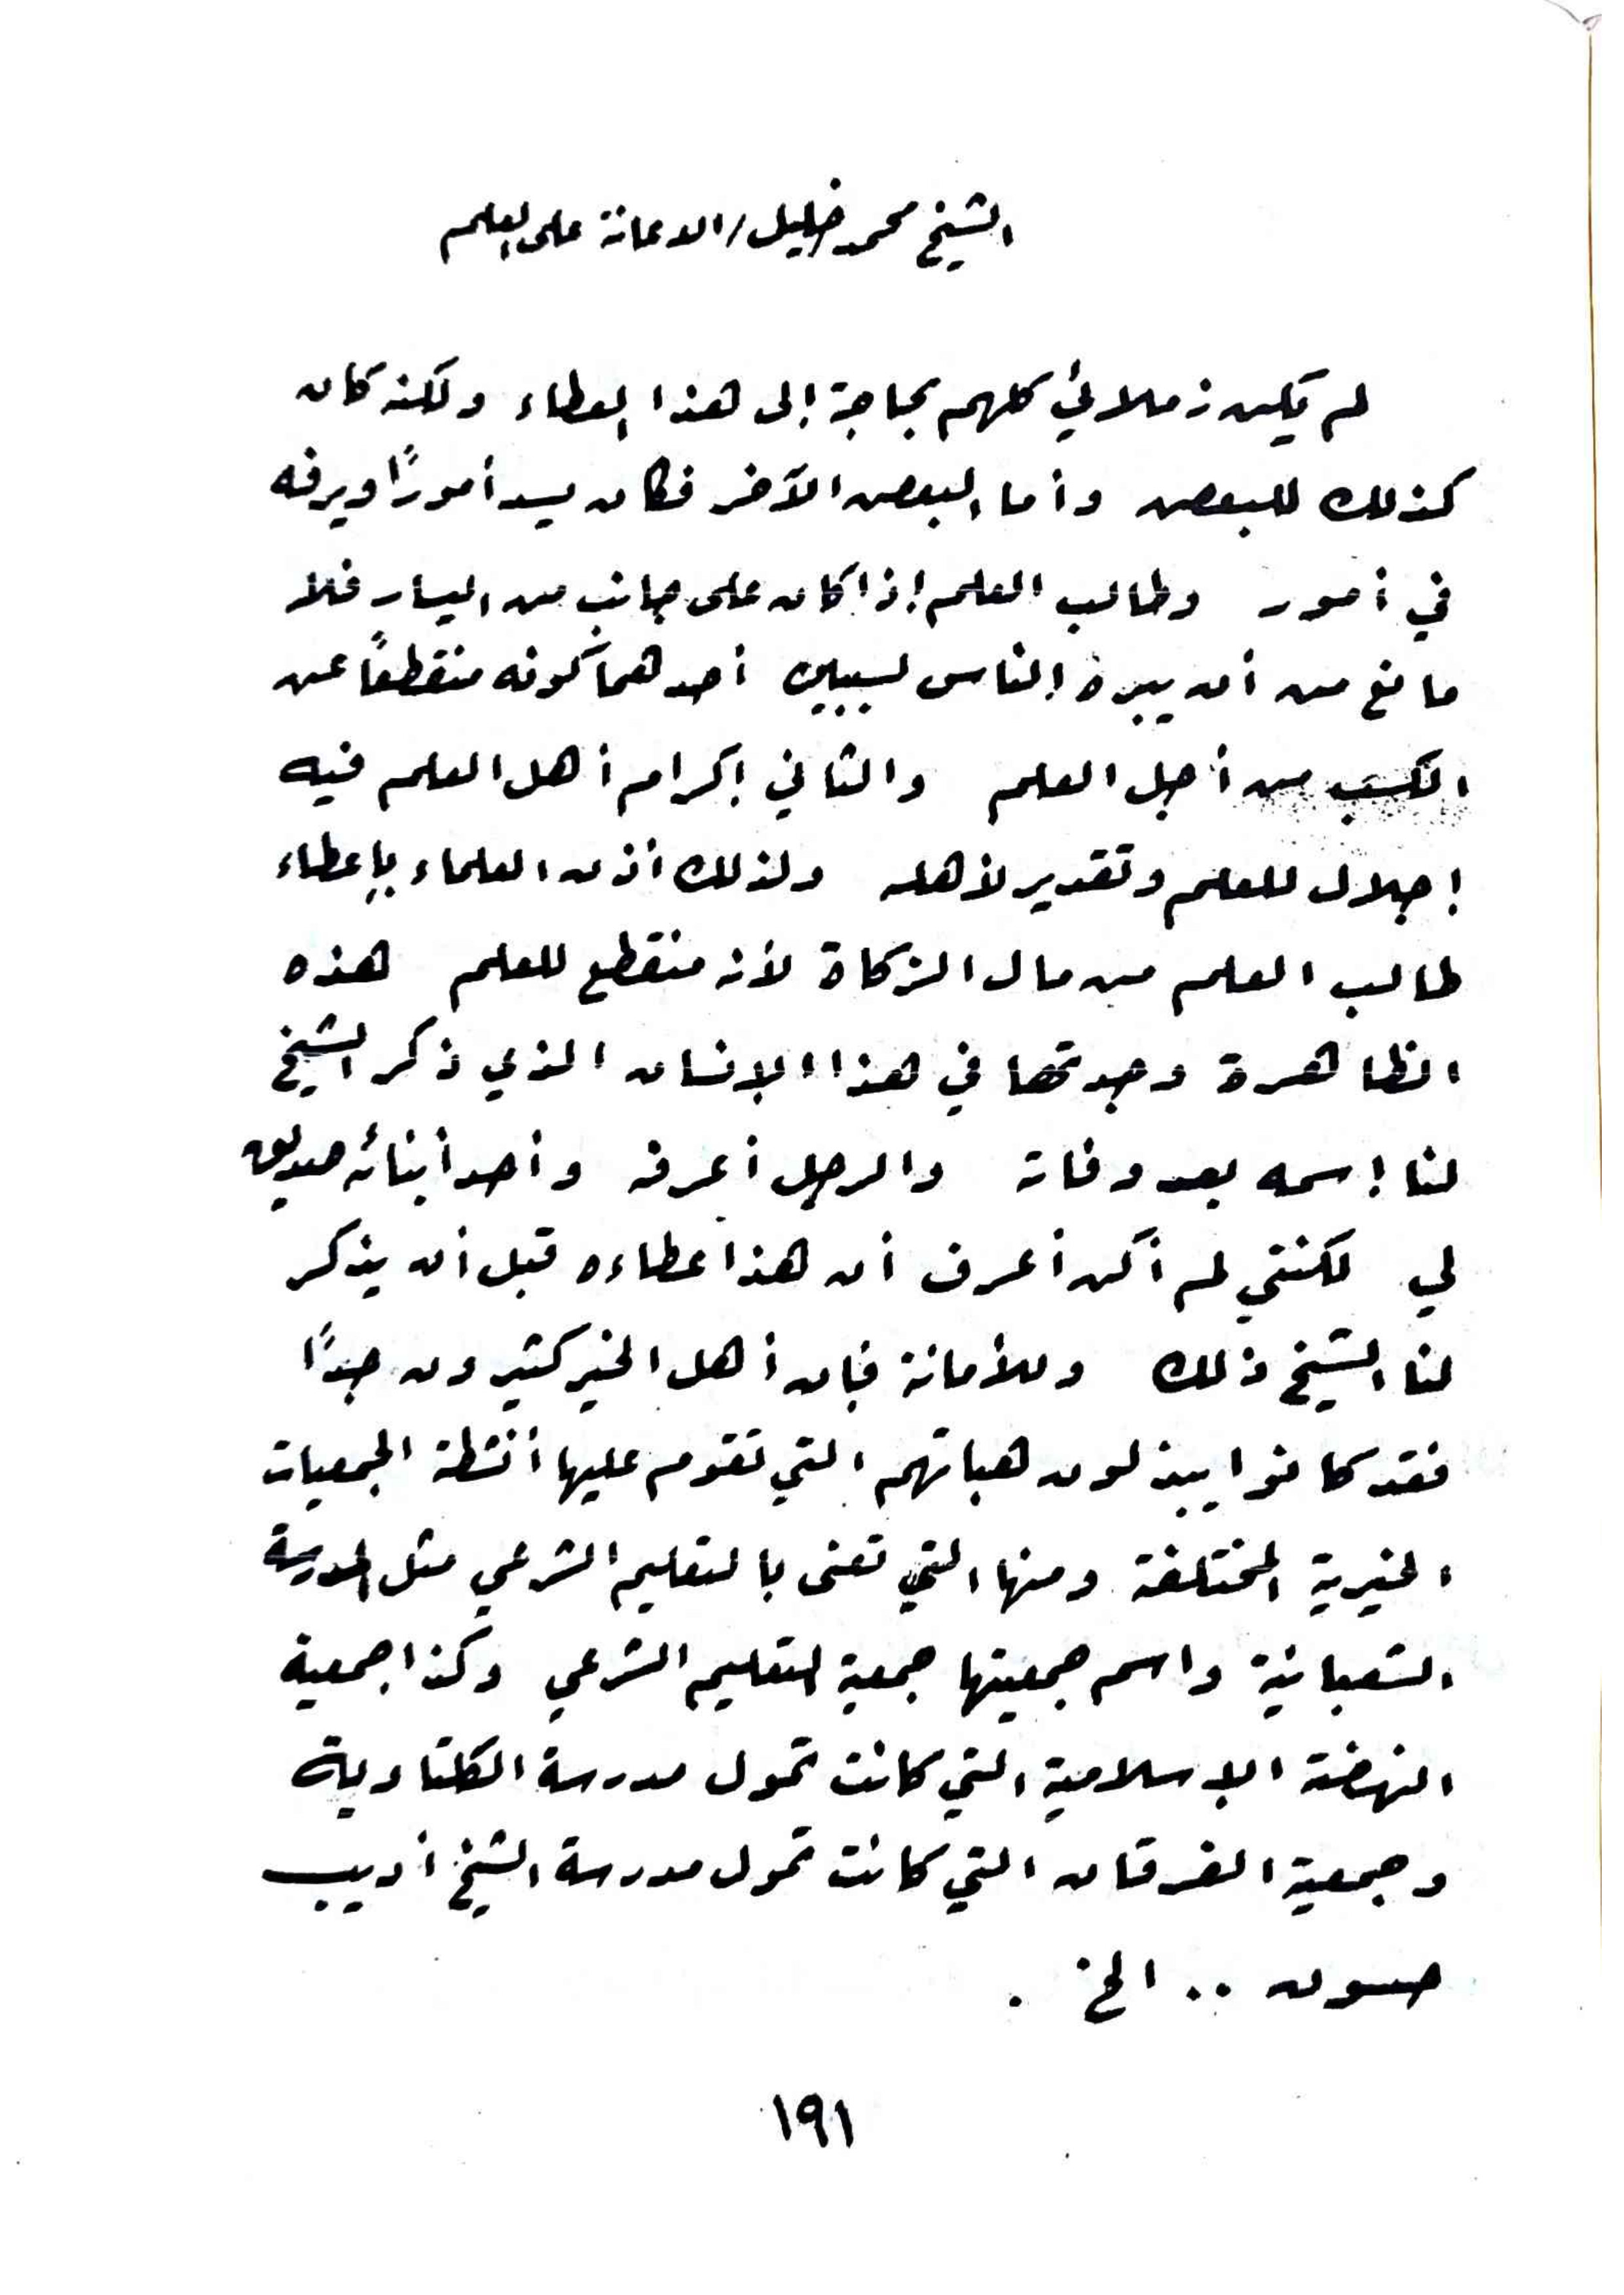 الشيخ محمد خليل / الاعانة على العلم
لم يكن زملائي كلهم بحاجة إلى هذا العطاء ولكنه كان
كذلك للبعض وأما البعض الآخر فكان يسد أمورًا ويرفه
في أمور وطالب العلم إذا كان على جانب من اليسار فلا
مانع من أن يبره الناس لسببين أحدهما كونه منقطعًا عن
الكسب من أجل العلم والثاني إكرام أهل العلم فيه
إجلال للعلم وتقدير لأهله ولذلك أذن العلماء بإعطاء
طالب العلم من مال الزكاة لأنه منقطع للعلم هذه
الظاهرة وجدتها في هذا الإنسان الذي ذكر الشيخ
لنا إسمه بعد وفاته والرجل أعرفه وأحد أبنائه صديق
لي لكنني لم أكن أعرف أن هذا عطاءه قبل أن يذكر
لنا الشيخ ذلك وللأمانة فإن أهل الخير كثيرون جدًا
فقد كانوا يبذلون هباتهم التي تقوم عليها أنشطة الجمعيات
الخيرية المختلفة ومنها التي تعنى بالتعليم الشرعي مثل المدرسة
الشعبانية واسم جمعيتها جمعية التعليم الشرعي وكذا جمعية
النهضة الإسلامية التي كانت تمول مدرسة الكلتاوية
وجمعية الفرقان التي كانت تمول مدرسة الشيخ أديب
حسون .. الخ .
١٩١